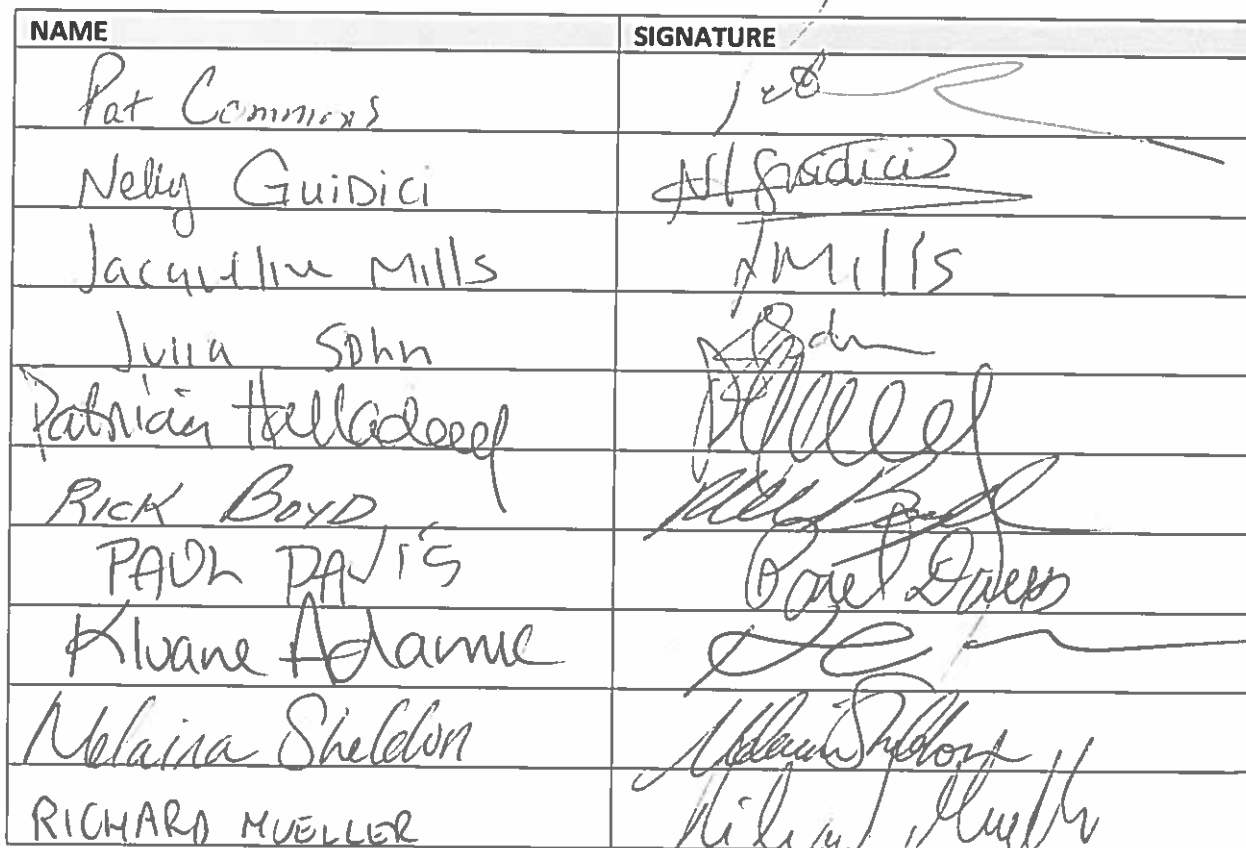 NAME SIGNATURE
Pat Commons
Nelly Guidici NLGuidici
Jacqueline Mills JMills
Julia Sohn
Patricia
Rick Boyd
PAUL DAVIS Paul Davis
Kluane Adamek
Melaina Sheldon Melaina Sheldon
RICHARD MUELLER Richard Mueller